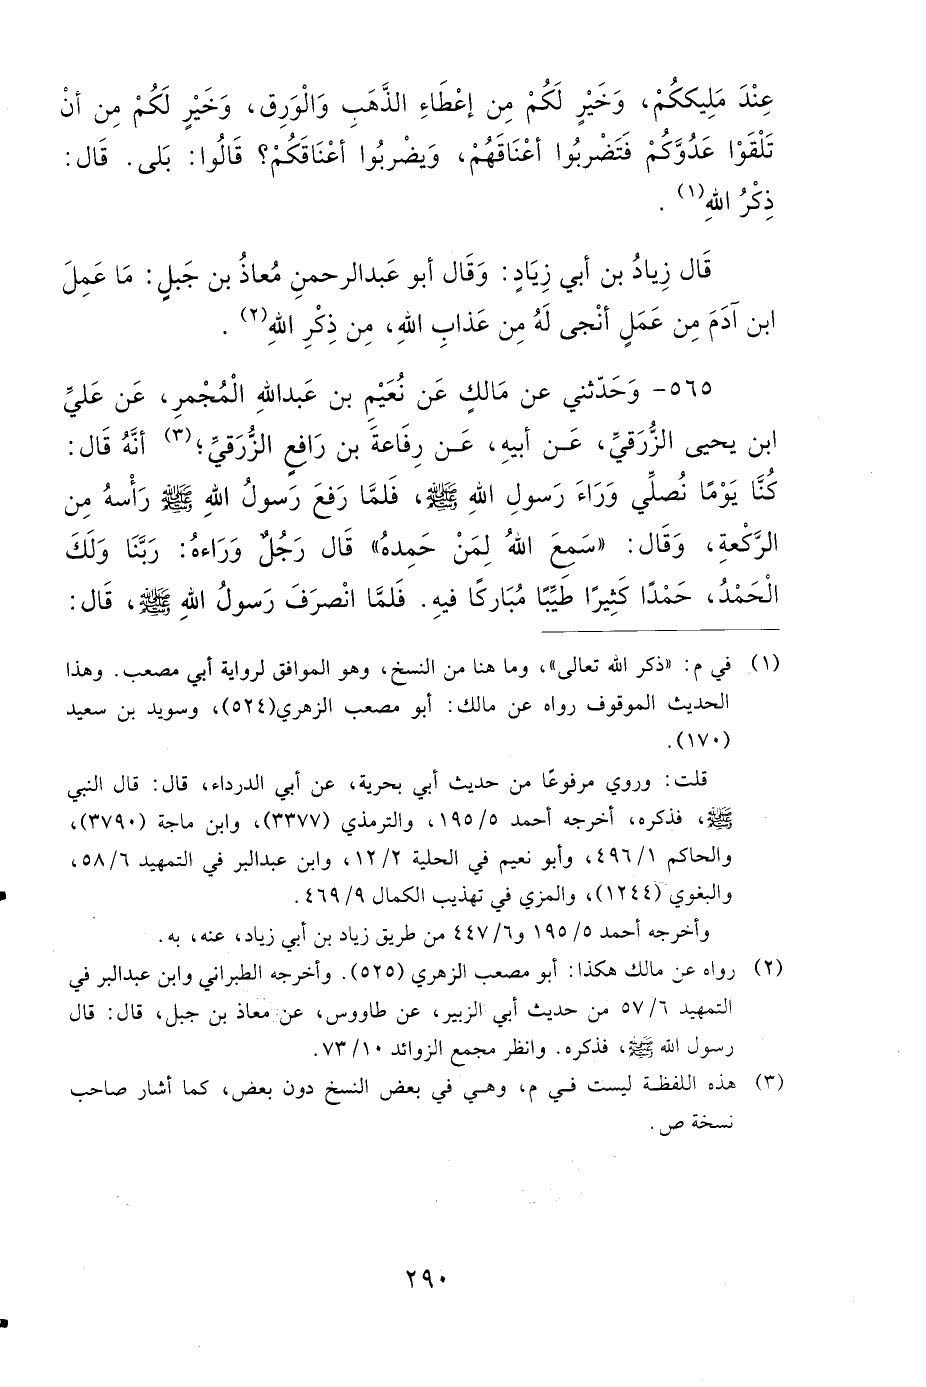 عِنْدَ مَلِيككُمْ، وَخَيْرٍ لَكُمْ مِن إعْطَاءِ الذَّهَبِ وَالْوَرِقِ، وَخَيْرٍ لَكُمْ مِن أنْ
تَلْقَوْا عَدُوَّكُمْ فَتَضْرِبُوا أعْنَاقَهُمْ، وَيضْرِبُوا أعْنَاقَكُمْ؟ قَالُوا: بَلى. قَال:
ذِكْرُ اللهِ(١) .
قَال زِيادُ بن أبي زِيَادٍ: وَقَال أبو عَبدالرحمنِ مُعاذُ بن جَبلٍ: مَا عَمِلَ
ابن آدَمَ مِن عَمَلٍ أنْجى لَهُ مِن عَذابِ اللهِ، مِن ذِكْرِ اللهِ(٢) .
٥٦٥- وَحَدّثني عن مَالكٍ عَن نُعَيْمِ بن عَبداللهِ الْمُجْمرِ، عَن عَليِّ
ابن يحيى الزُّرَقيِّ، عَن أبيهِ، عَن رِفَاعةَ بن رَافعٍ الزُّرَقيِّ؛(٣) أنَّهُ قَال:
كُنَّا يَوْمًا نُصلِّي وَرَاءَ رَسولِ اللهِ ﷺ، فَلمَّا رَفعَ رَسولُ اللهِ ﷺ رَأْسهُ مِن
الرَّكْعةِ، وَقَال: «سَمِعَ اللهُ لِمَنْ حَمِدهُ» قَال رَجُلٌ وَرَاءهُ: رَبَّنَا وَلَكَ
الْحَمْدُ، حَمْدًا كَثِيرًا طَيِّبًا مُبَاركًا فيهِ. فَلمَّا انْصرَفَ رَسولُ اللهِ ﷺ، قَال:
(١) في م: «ذكر الله تعالى»، وما هنا من النسخ، وهو الموافق لرواية أبي مصعب. وهذا
الحديث الموقوف رواه عن مالك: أبو مصعب الزهري(٥٢٤)، وسويد بن سعيد
(١٧٠).
قلت: وروي مرفوعًا من حديث أبي بحرية، عن أبي الدرداء، قال: قال النبي
ﷺ، فذكره، أخرجه أحمد ٥/ ١٩٥، والترمذي (٣٣٧٧)، وابن ماجة (٣٧٩٠)،
والحاكم ١/ ٤٩٦، وأبو نعيم في الحلية ٢/ ١٢، وابن عبدالبر في التمهيد ٦/ ٥٨،
والبغوي (١٢٤٤)، والمزي في تهذيب الكمال ٩/ ٤٦٩.
وأخرجه أحمد ٥/ ١٩٥ و٦/ ٤٤٧ من طريق زياد بن أبي زياد، عنه، به.
(٢) رواه عن مالك هكذا: أبو مصعب الزهري (٥٢٥). وأخرجه الطبراني وابن عبدالبر في
التمهيد ٦/ ٥٧ من حديث أبي الزبير، عن طاووس، عن معاذ بن جبل، قال: قال
رسول الله ﷺ، فذكره. وانظر مجمع الزوائد ١٠/ ٧٣.
(٣) هذه اللفظة ليست في م، وهي في بعض النسخ دون بعض، كما أشار صاحب
نسخة ص.
٢٩٠